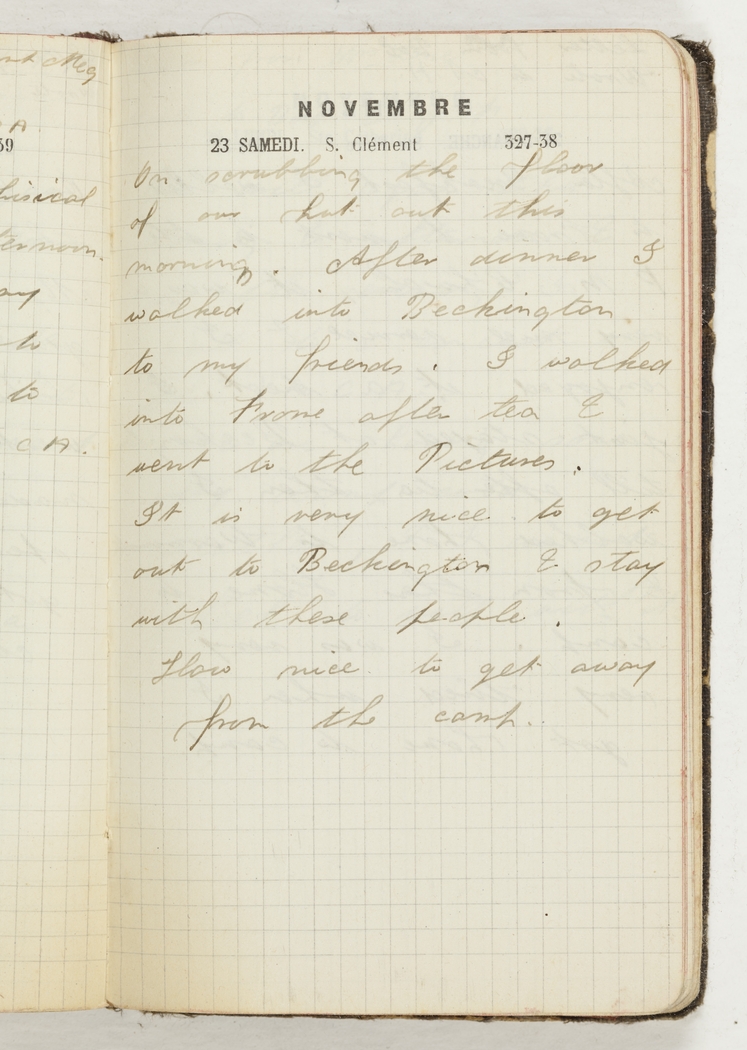 nt Meg
A
59
hisical
ternoon.
ay
to
to
C A.
NOVEMBRE
23 SAMEDI. S. Clément 327-38
On scrubbing the floor
of our hut out this
morning. After dinner I
walked into Beckington
to my friends. I walked
into Frome after tea &
went to the Pictures.
It is very nice to get
out to Beckington & stay
with these people.
How nice to get away
from the camp.